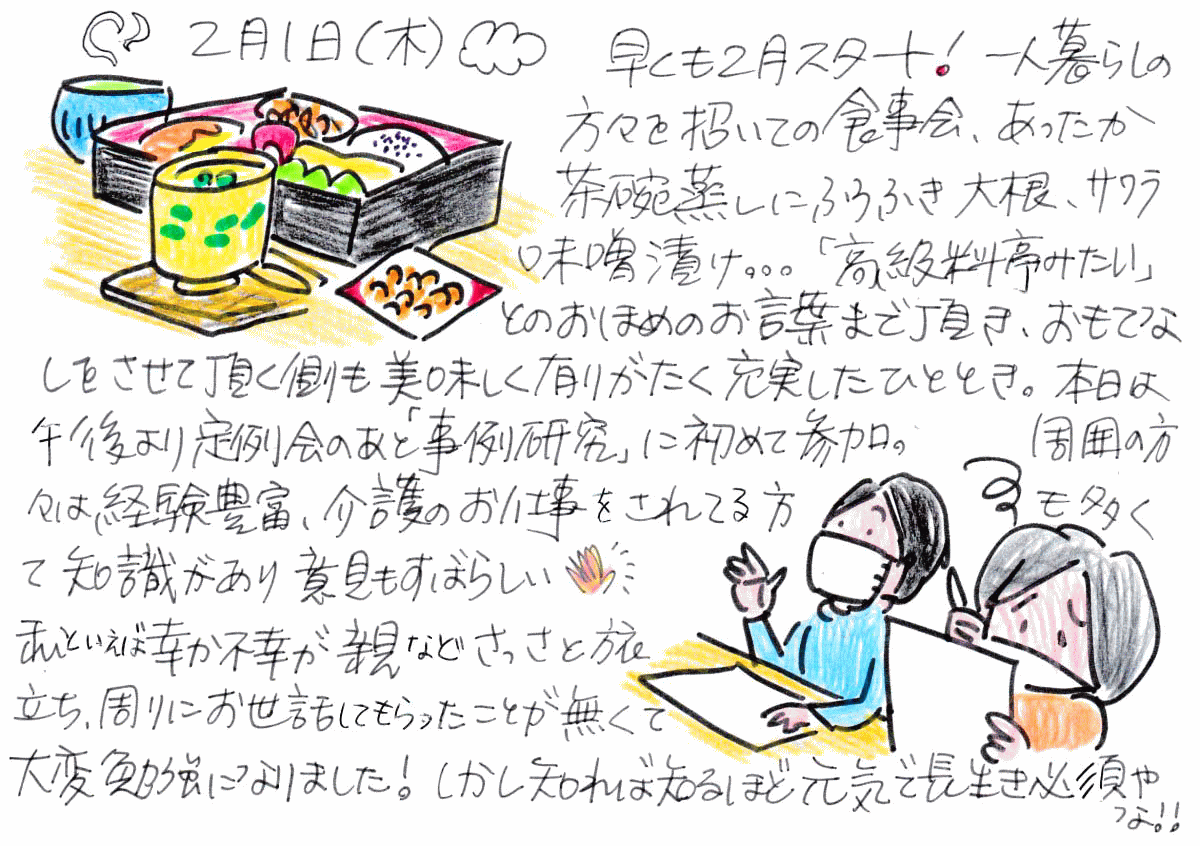 2月1日(木)
早くも2月スタート! 一人暮らしの
方々を招いての食事会、あったか
茶碗蒸しにふろふき大根、サワラ
味噌漬け。。。「高級料亭みたい」
とのおほめのお言葉まで頂き、おもてな
しをさせて頂く側も美味しく有りがたく充実したひととき。本日は
午後より定例会のあと「事例研究」に初めて参加。 周囲の方
々は経験豊富、介護のお仕事をされてる方も多く
て知識があり意見もすばらしい
私といえば幸か不幸か親などさっさと旅
立ち、周りにお世話してもらったことが無くて
大変勉強になりました! しかし知れば知るほど元気で長生き必須や
な!!